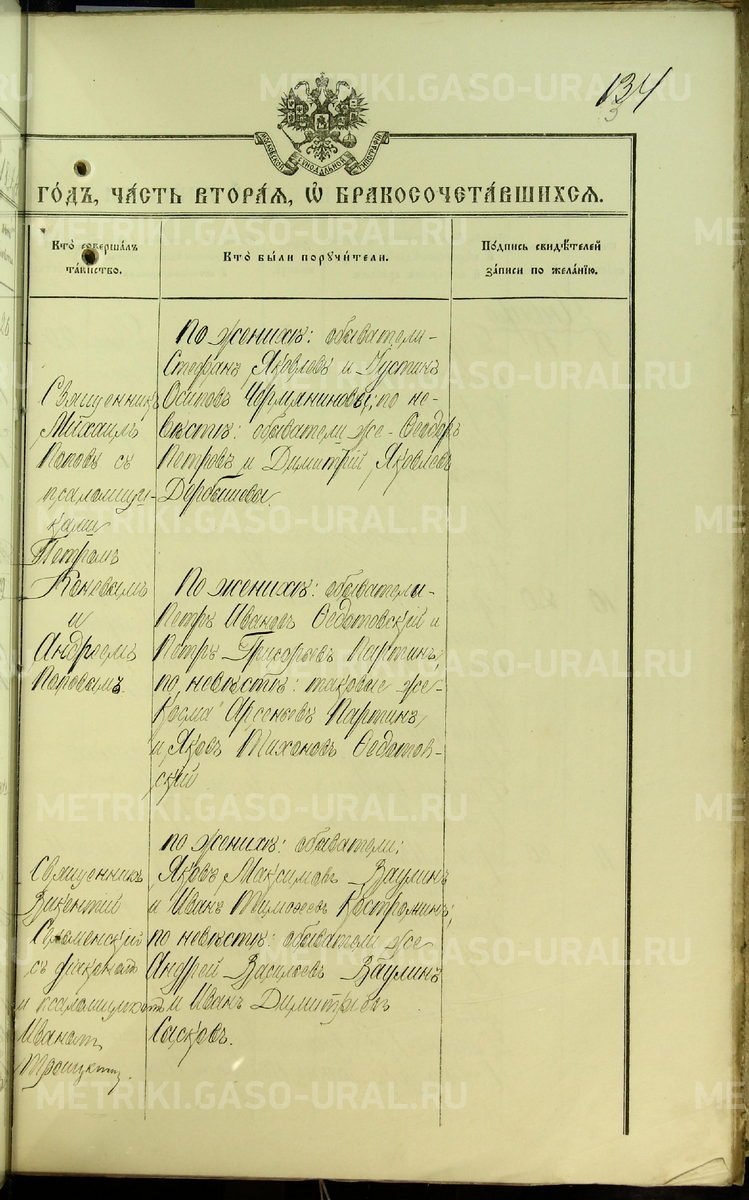 134
МОСКОВСКОЙ СѴНОДАЛЬНОЙ ТИПОГРАФІИ
ГО́ДЪ, ЧА́СТЬ ВТОРА́Я, Ѡ БРАКОСОЧЕТА́ВШИХСЯ.
Кто̀ соверша́лъ
та́инство.
Кто̀ бы́ли порꙋчи́тели.
По́дпись свидѣ́телей
за́писи по жела́нїю.
Священникъ
Михаилъ
Поповъ съ
псаломщи-
ками
Петромъ
Коневымъ
и
Андреемъ
Поповымъ.
По женихѣ: обыватели-
Стефанъ Яковлевъ и Іустинъ
Осиповъ Чермяниновы; по не-
вѣстѣ: обыватели же- Ѳеодоръ
Петровъ и Димитрій Яковлевъ
Дербышевы.
По женихѣ: обыватели-
Петръ Ивановъ Ѳедотовскій и
Петръ Григорьевъ Партинъ,
по невѣстѣ: таковые же-
Косма Арсеньевъ Партинъ
и Яковъ Тихоновъ Ѳедотов-
скій
Священникъ
Викентій
съ діакономъ
и псаломщикомъ
Иваномъ
Троицкимъ.
по женихѣ: обыватели:
Яковъ Максимовъ Ваулинъ
и Иванъ Тимофеевъ Костроминъ;
по невѣстѣ: обыватели же
Андрей Васильевъ Ваулинъ
и Иванъ Димитріевъ
Сасковъ.
METRIKI.GASO-URAL.RU